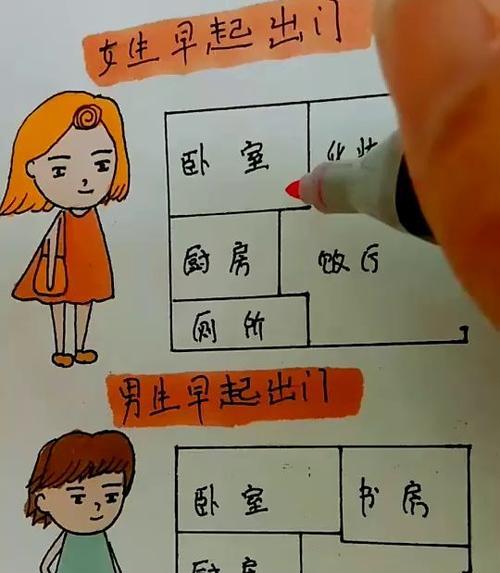 女生早起出门
卧室
厨房 饭厅
厕所
男生早起出门
卧室 书房
厨房